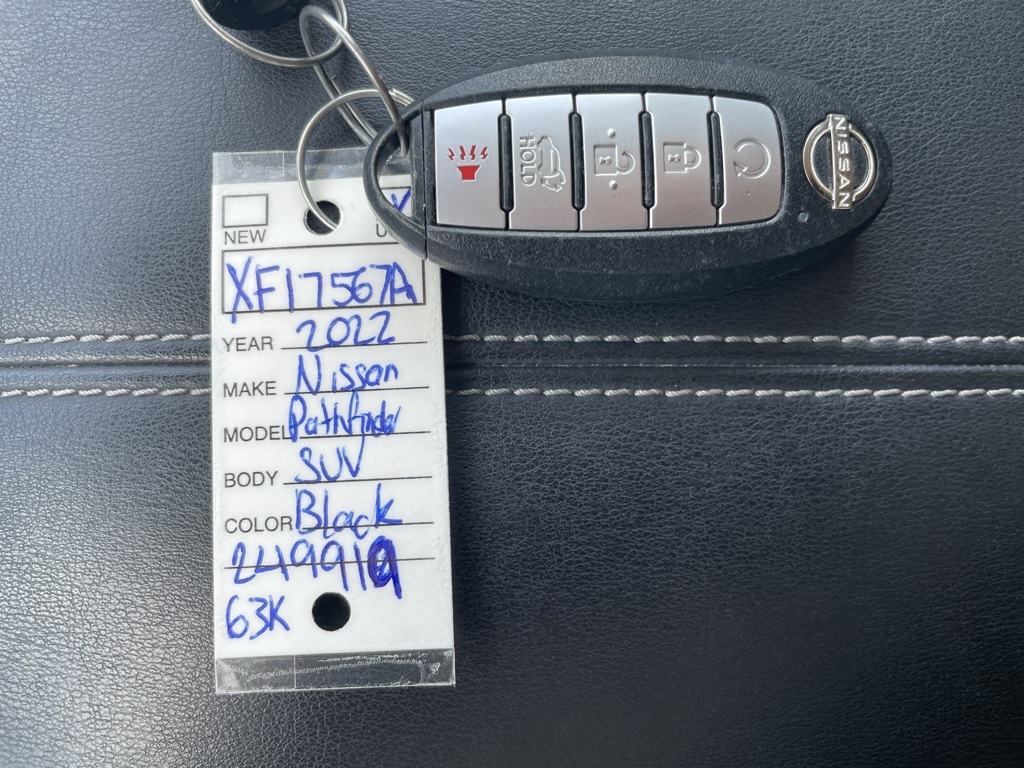 NEW
XF17567A
YEAR 2022
MAKE Nissan
MODEL Pathfinder
BODY SUV
COLOR Black
249919
63K
HOLD
NISSAN